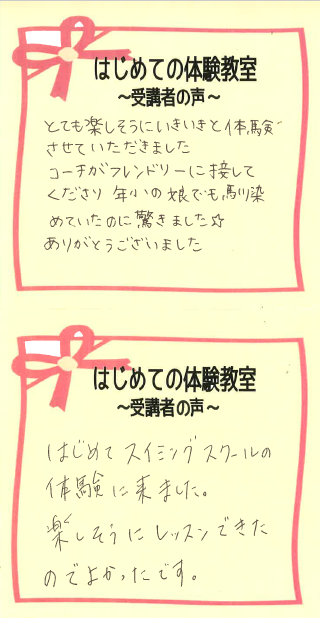 はじめての体験教室
～受講者の声～
とても楽しそうにいきいきと体験
させていただきました
コーチがフレンドリーに接して
くださり 年小の娘でも馴染
めていたのに驚きました☆
ありがとうございました
はじめての体験教室
～受講者の声～
はじめてスイミングスクールの
体験に来ました。
楽しそうにレッスンできた
のでよかったです。